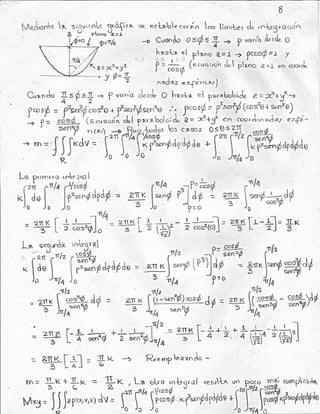 8
Mediante la siguiente gráfica se establecerán los límites de integración
z plano z=1
φ=0 φ=π/4
π/4
z=x²+y²
y φ=π/2
→ Cuando 0≤φ≤π/4 → ρ varía desde 0
hasta el plano z=1 → ρcosφ=1 y
ρ = 1/cosφ (ecuación del plano z=1 en coorde
nadas esféricas)
Cuando π/4≤φ≤π/2 → ρ varía desde 0 hasta el paraboloide z=x²+y² →
ρcosφ = ρ²sen²φcos²θ + ρ²sen²φsen²θ ∴ ρcosφ = ρ²sen²φ(cos²θ+sen²θ)
→ ρ = cosφ/sen²φ (Ecuación del paraboloide z=x²+y² en coordenadas esfé-
ricas) → Para todos los casos 0≤θ≤2π
→ m = ∫∫∫_R k dV = ∫_0^{2π} ∫_0^{π/4} ∫_0^{1/cosφ} kρ²senφdρdφdθ + ∫_0^{2π} ∫_{π/4}^{π/2} ∫_0^{cosφ/sen²φ} kρ²senφdρdφdθ
La primera integral
k ∫_0^{2π} dθ ∫_0^{π/4} ∫_0^{1/cosφ} ρ²senφdρdφ = 2πk/3 ∫_0^{π/4} senφ ρ³ ]_{ρ=0}^{ρ=1/cosφ} dφ = 2πk/3 ∫_0^{π/4} senφ 1/cos³φ dφ
= 2πk/3 [1/2 1/cos²φ]_0^{π/4} = 2πk/3 [1/2 1/(1/√2)² - 1/2 1/cos²(0)] = 2πk/3 [1-1/2] = π/3 k
La segunda integral
k ∫_0^{2π} dθ ∫_{π/4}^{π/2} ∫_0^{cosφ/sen²φ} ρ²senφdρdφdθ = 2πk/3 ∫_{π/4}^{π/2} senφ (ρ³) ]_{ρ=0}^{ρ=cosφ/sen²φ} dφ = 2πk/3 ∫_{π/4}^{π/2} senφ cos³φ/sen⁶φ dφ
= 2πk/3 ∫_{π/4}^{π/2} cos³φ/sen⁵φ dφ = 2πk/3 ∫_{π/4}^{π/2} (1-sen²φ)cosφ/sen⁵φ dφ = 2πk/3 ∫_{π/4}^{π/2} (cosφ/sen⁵φ - cosφ/sen³φ) dφ
= 2πk/3 [-1/4 1/sen⁴φ + 1/2 1/sen²φ]_{π/4}^{π/2} = 2πk/3 [-1/4 + 1/2 + 1/4 1/(1/√2)⁴ - 1/2 1/(1/√2)²]
= 2πk/3 [1/4] = π/6 k → Reemplazando -
m = π/3 k + π/6 k = π/2 k , La otra integral resulta un poco más complicada
Mxy = ∫∫∫ zρ(x,y,z) dV = ∫_0^{2π} ∫_0^{π/4} ∫_0^{1/cosφ} ρcosφ kρ²senφdρdφdθ + ∫_0^{2π} ∫_{π/4}^{π/2} ∫_0^{cosφ/sen²φ} ρcosφ kρ²senφdρdφdθ